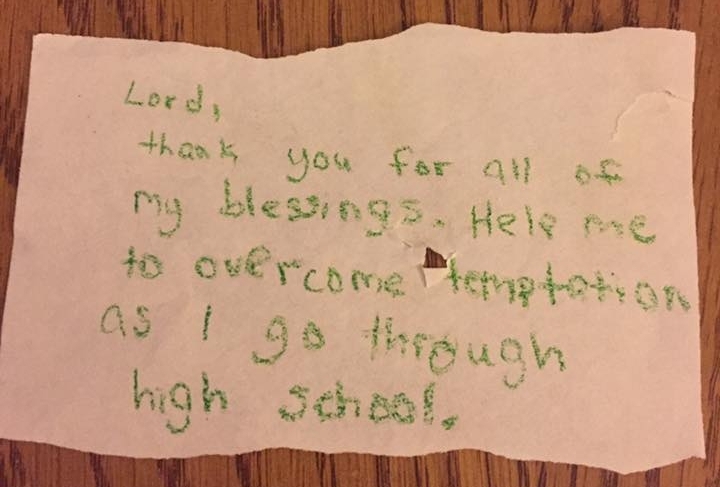 Lord,
thank you for all of
my blessings. Help me
to overcome temptation
as I go through
high school.